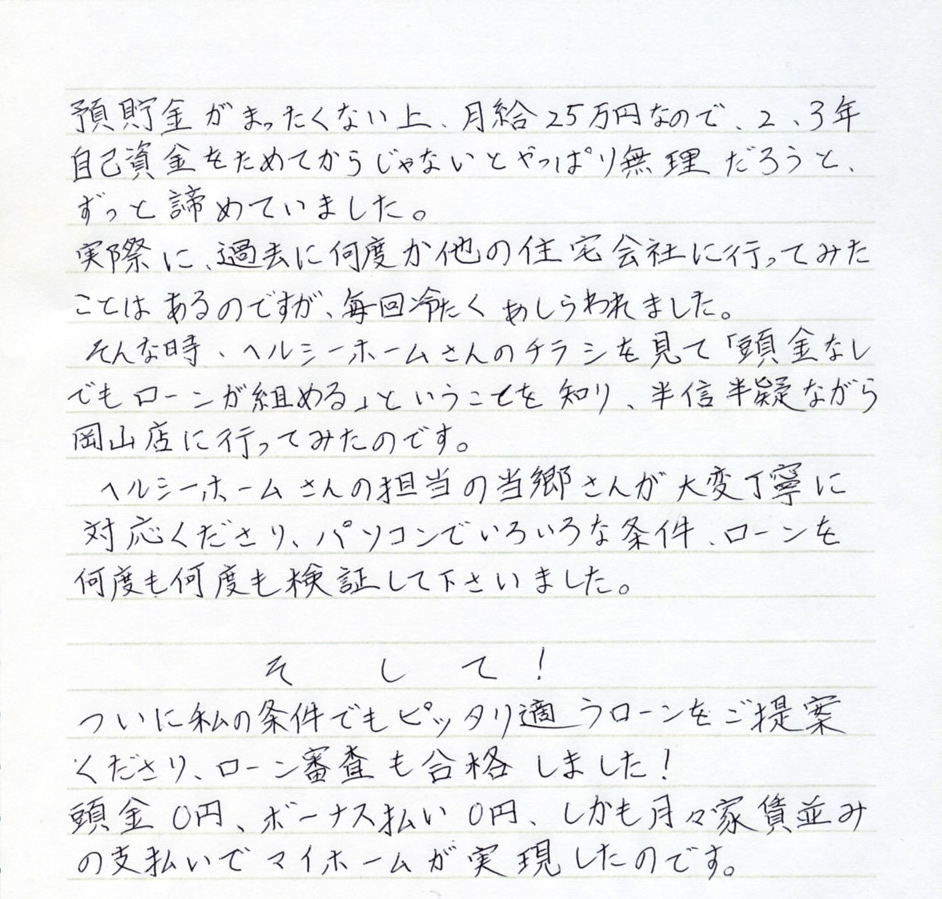 預貯金がまったくない上、月給25万円なので、2、3年
自己資金をためてからじゃないとやっぱり無理だろうと、
ずっと諦めていました。
実際に、過去に何度か他の住宅会社に行ってみた
ことはあるのですが、毎回冷たくあしらわれました。
そんな時、ヘルシーホームさんのチラシを見て「頭金なし
でもローンが組める」ということを知り、半信半疑ながら
岡山店に行ってみたのです。
ヘルシーホームさんの担当の当郷さんが大変丁寧に
対応くださり、パソコンでいろいろな条件、ローンを
何度も何度も検証して下さいました。
そして!
ついに私の条件でもピッタリ適うローンをご提案
くださり、ローン審査も合格しました!
頭金0円、ボーナス払い0円、しかも月々家賃並み
の支払いでマイホームが実現したのです。